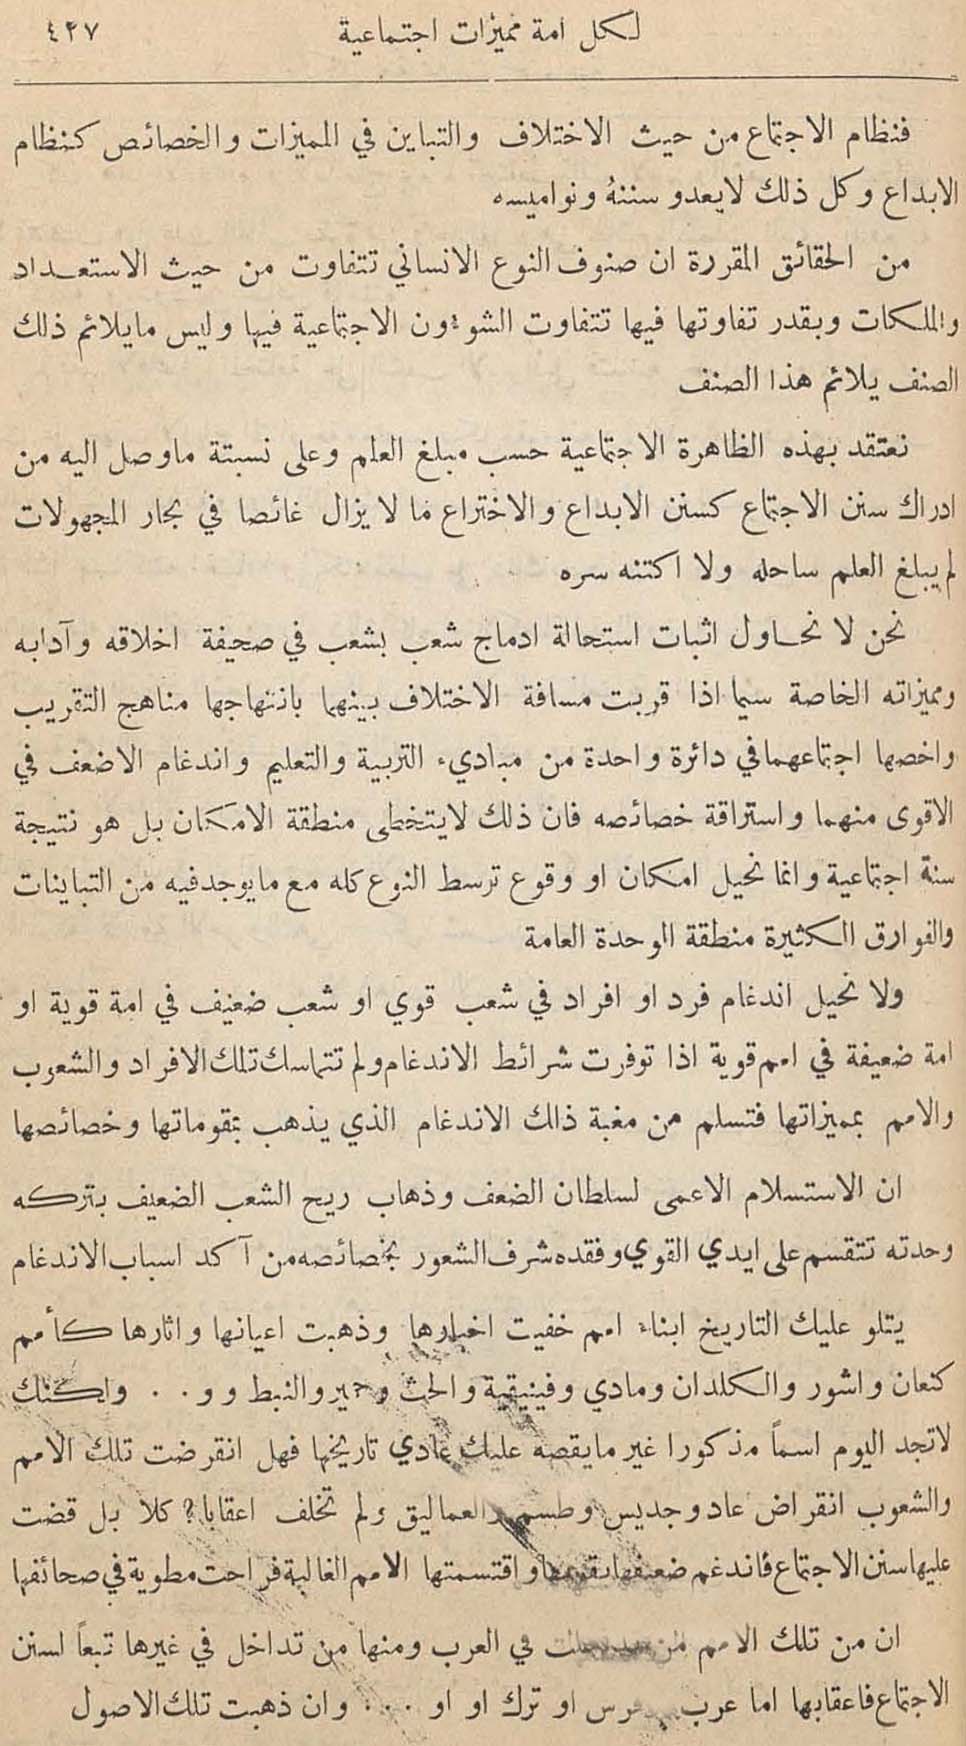 لكل امة مميزات اجتماعية
٤٣٧
فنظام الاجتماع من حيث الاختلاف والتباين في المميزات والخصائص كنظام
الابداع وكل ذلك لا يعدو سننهُ ونواميسه
من الحقائق المقررة ان صنوف النوع الانساني تتفاوت من حيث الاستعداد
والملكات وبقدر تفاوتها فيها تتفاوت الشوءون الاجتماعية فيها وليس ما يلائم ذلك
الصنف يلائم هذا الصنف
نعتقد بهذه الظاهرة الاجتماعية حسب مبلغ العلم وعلى نسبتة ماوصل اليه من
ادراك سنن الاجتماع كسنن الابداع والاختراع مما لا يزال غائصا في بحار المجهولات
لم يبلغ العلم ساحله ولا اكتنه سره
نحن لا نحاول اثبات استحالة ادماج شعب بشعب في صحيفة اخلاقه وآدابه
ومميزاته الخاصة سيما اذا قربت مسافة الاختلاف بينهما بانتهاجها مناهج التقريب
واخصها اجتماعهما في دائرة واحدة من مباديء التربية والتعليم واندغام الاضعف في
الاقوى منهما واستراقة خصائصه فان ذلك لا يتخطى منطقة الامكان بل هو نتيجة
سنة اجتماعية وانما نحيل امكان او وقوع ترسط النوع كله مع ما يوجد فيه من التباينات
والفوارق الكثيرة منطقة الوحدة العامة
ولا نحيل اندغام فرد او افراد في شعب قوي او شعب ضعيف في امة قوية او
امة ضعيفة في امم قوية اذا توفرت شرائط الاندغام ولم تتماسك تلك الافراد والشعوب
والامم بمميزاتها فتسلم من مغبة ذالك الاندغام الذي يذهب بمقوماتها وخصائصها
ان الاستسلام الاعمى لسلطان الضعف وذهاب ريح الشعب الضعيف بتركه
وحدته تتقسم على ايدي القوي وفقده شرف الشعور بخصائصه من آكد اسباب الاندغام
يتلو عليك التاريخ ابناء امم خفيت اخبارها وذهبت اعيانها واثارها كأمم
كنعان واشور والكلدان ومادي وفينيقية والحث وحمير والنبط و و . . ولكنك
لا تجد اليوم اسماً مذكورا غير ما يقصه عليك عادي تاريخها فهل انقرضت تلك الامم
والشعوب انقراض عاد وجديس وطسم والعماليق ولم تخلف اعقابا؟ كلا بل قضت
عليها سنن الاجتماع فاندغم ضعيفها بقويها واقتسمتها الامم الغالبة فراحت مطوية في صحائفها
ان من تلك الامم من في العرب ومنها من تداخل في غيرها تبعاً لسنن
الاجتماع فاعقابها اما عرب فرس او ترك او او . . . وان ذهبت تلك الاصول